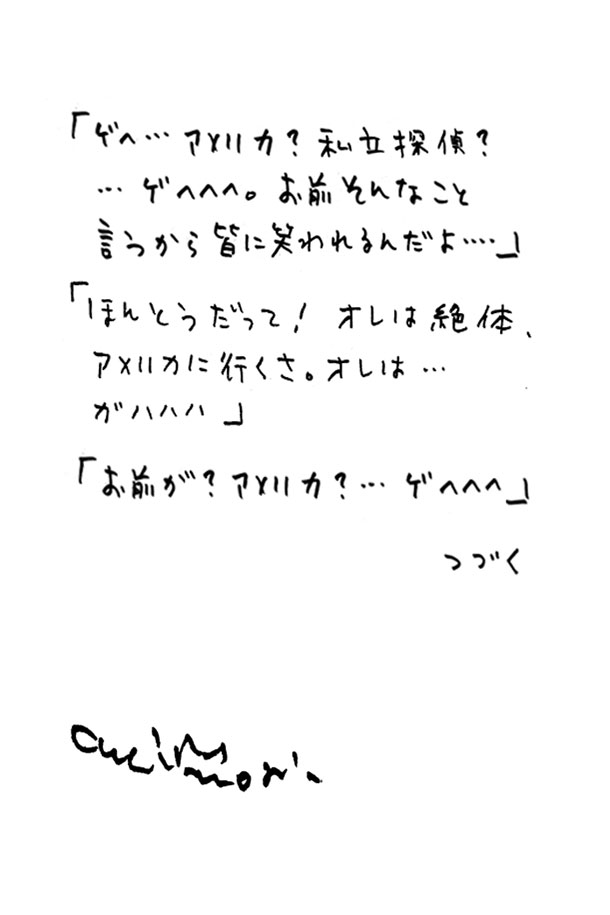 「ゲヘ… アメリカ？私立探偵？
… ゲヘヘヘ。お前そんなこと
言うから皆に笑われるんだよ…‥」
「ほんとうだって！ オレは絶体、
アメリカに行くさ。オレは…
がハハハ」
「お前が？アメリカ？… ゲヘヘヘ」
つづく